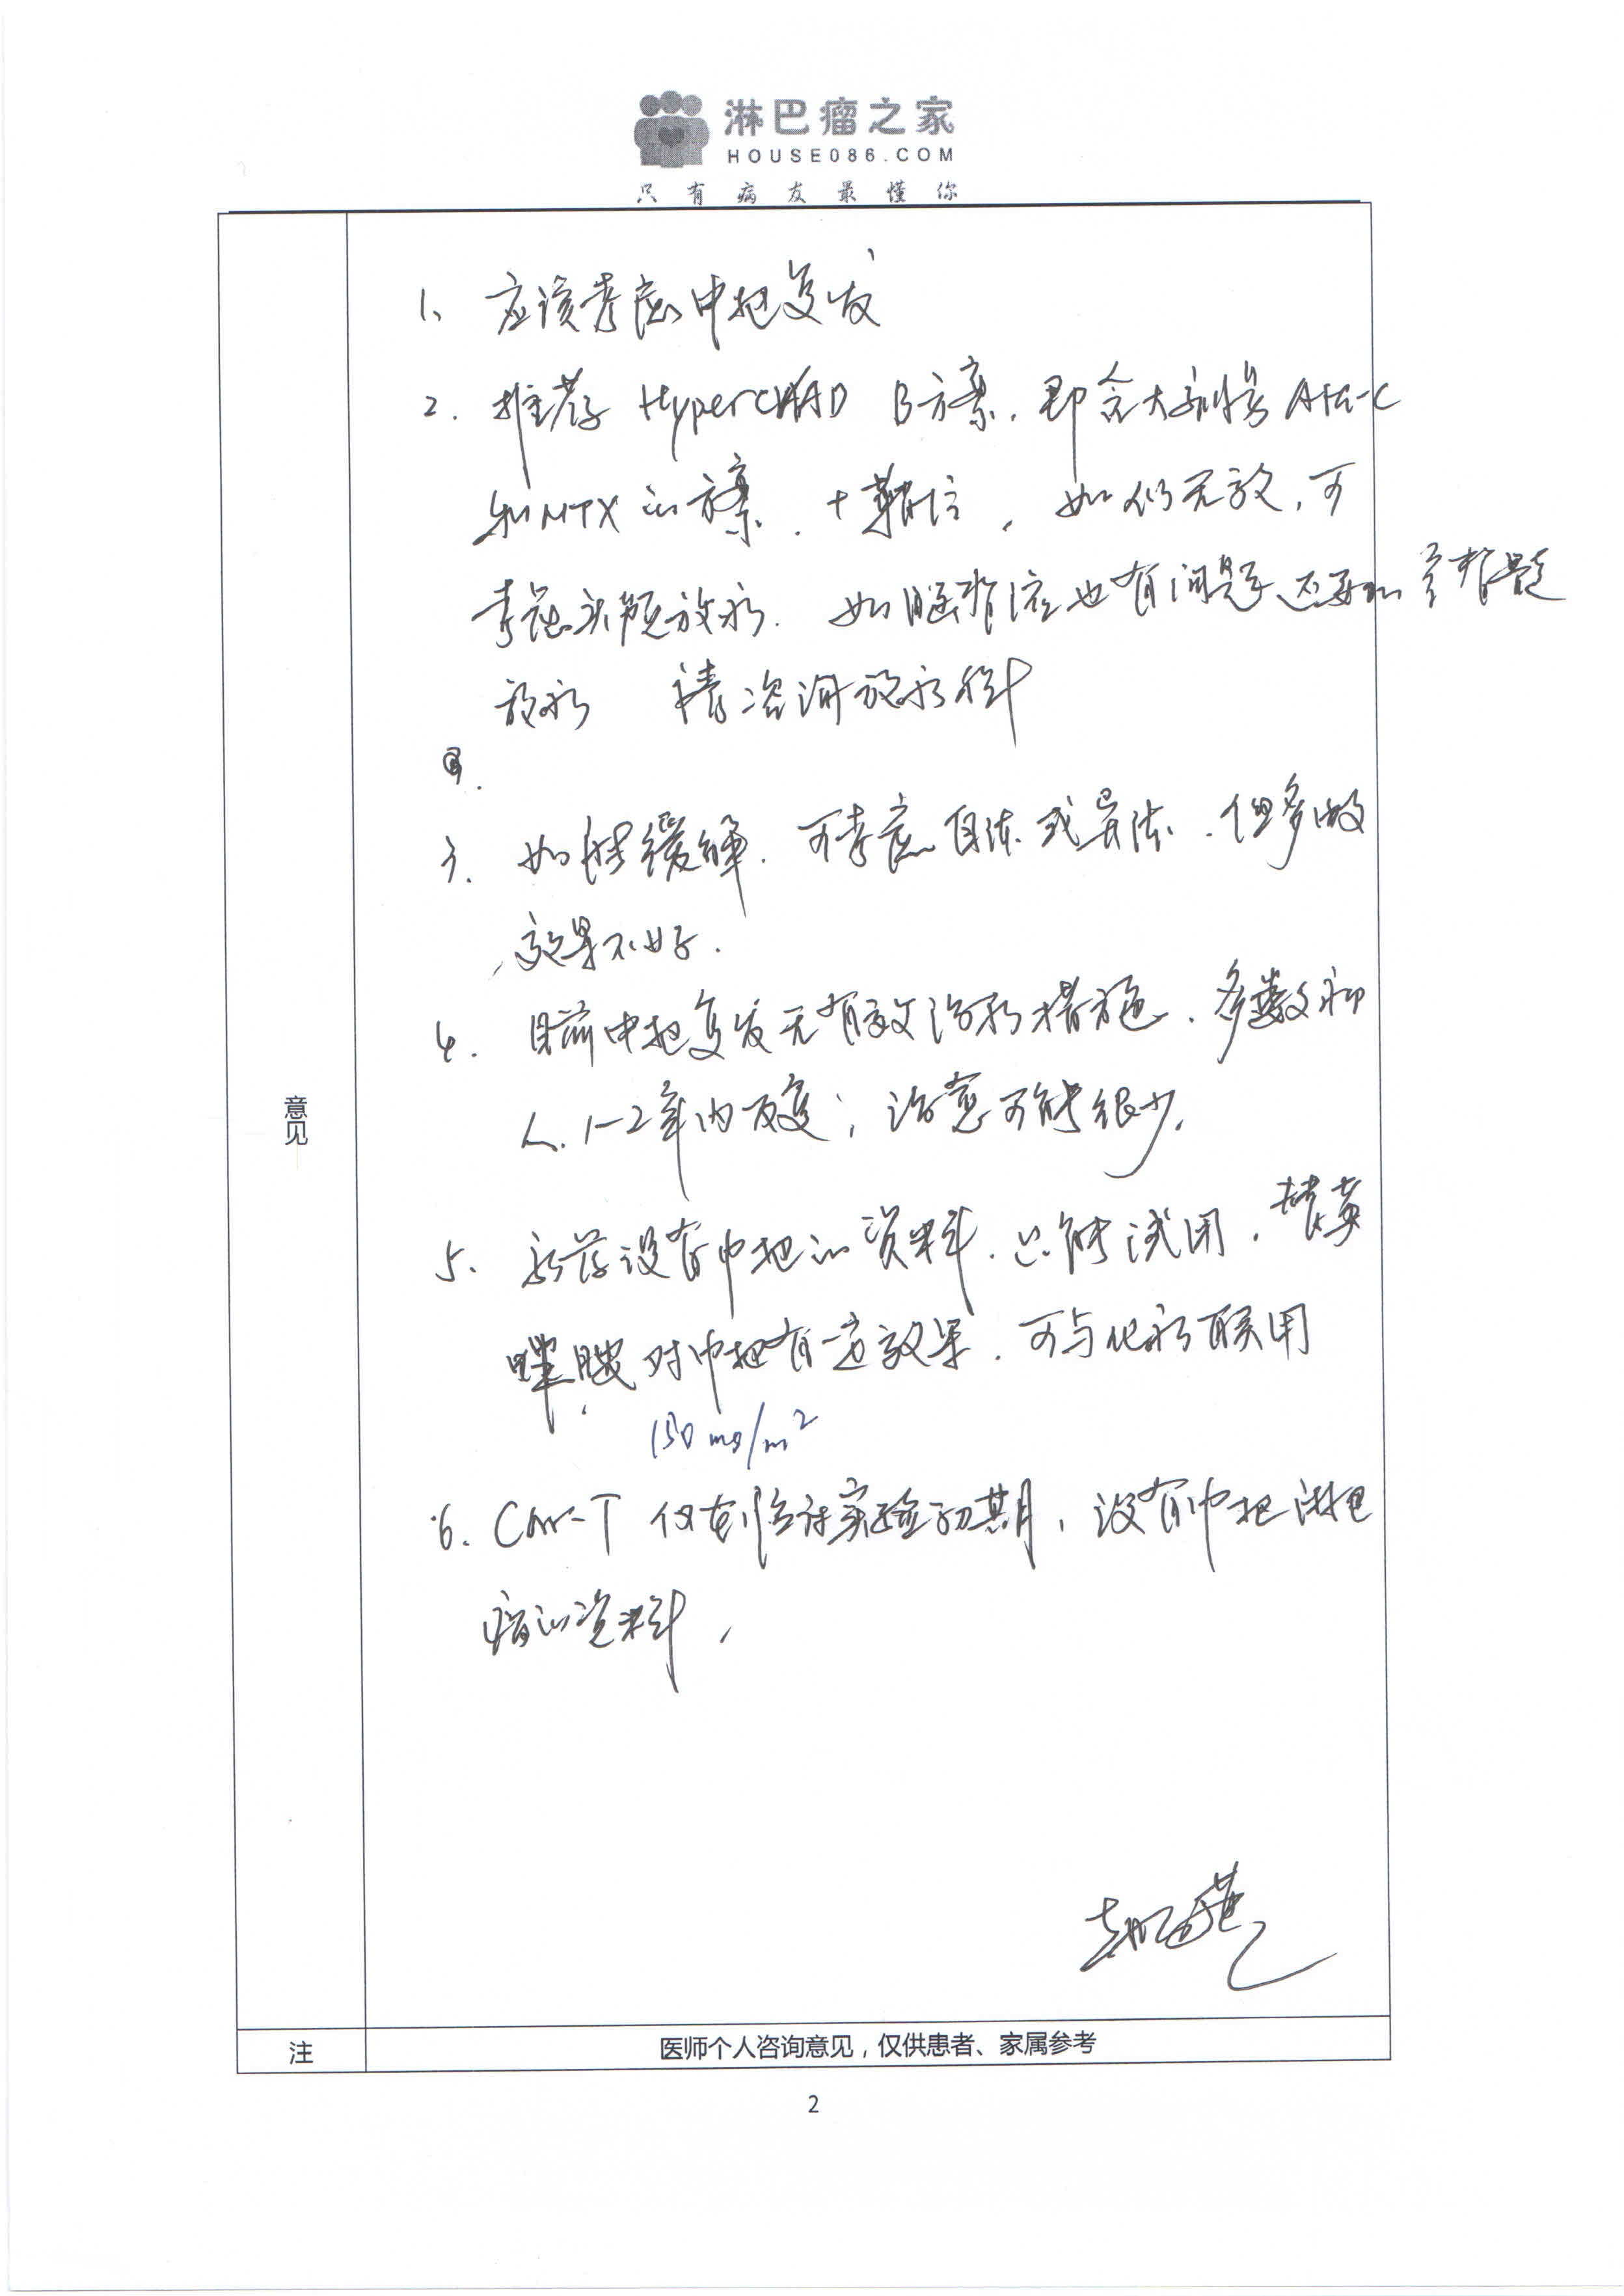 淋巴瘤之家
HOUSE086.COM
只有病友最懂你
意见
1、应该考虑中枢复发
2. 推荐 HyperCVAD B方案，即含大剂量 Ara-C
和MTX的方案，+鞘注，如仍无效，可
考虑头颅放疗. 如脑脊液也有问题还要加全脊髓
放疗 请咨询放疗科
3. 如能缓解，可考虑自体或异体，但多数
效果不好.
4. 目前中枢复发无有效治疗措施，多数病
人1-2年内反复；治愈可能很少.
5. 新药没有中枢的资料，只能试用，替莫
唑胺对中枢有一定效果，可与化疗联用
150 mg/m²
6. CAR-T 仅在临床实验初期，没有中枢淋巴
瘤的资料，
注
医师个人咨询意见，仅供患者、家属参考
2